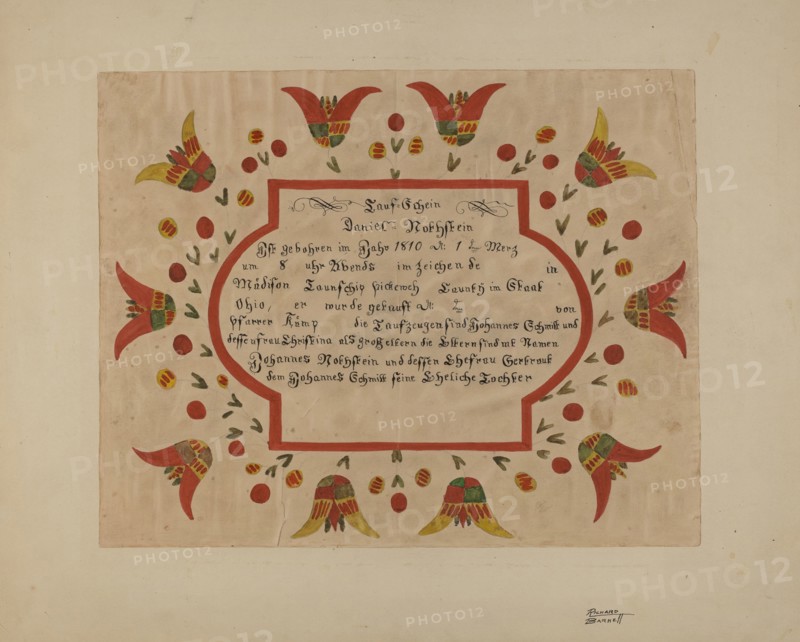 Tauf-Schein
Daniel Nothstein
Ist gebohren im Jahr 1810 d: 1 te Merz
um 8 uhr Abends im zeichen de in
Mädison Taunschip pickeweh Caunth im Staat
Ohio, er wurde getauft d: te von
pfarrer Kämp die Taufzeugen sind Johannes Schmitt und
dessen frau Christina als großeltern die Eltern sind mt Namen
Johannes Nothstein und dessen Ehefrau Gertraut
dem Johannes Schmitt seine Eheliche Tochter
RICHARD
BARNETT
PHOTO12